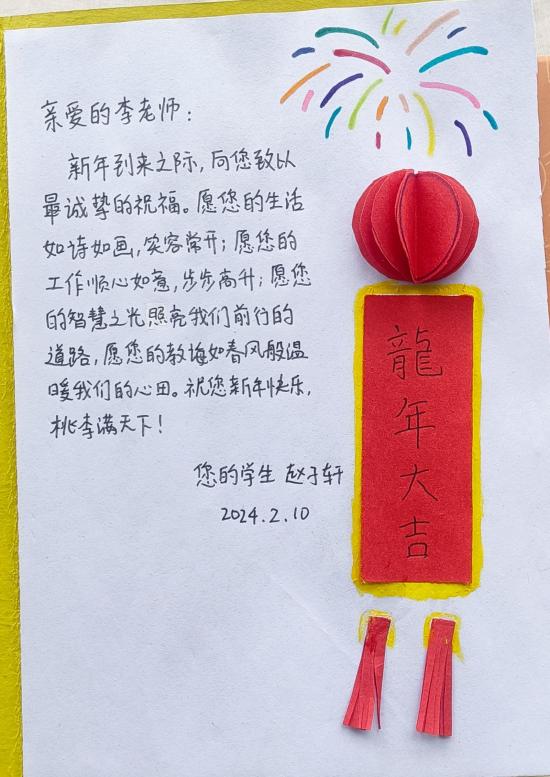 亲爱的李老师：
新年到来之际，向您致以
最诚挚的祝福。愿您的生活
如诗如画，笑容常开；愿您的
工作顺心如意，步步高升；愿您
的智慧之光照亮我们前行的
道路，愿您的教诲如春风般温
暖我们的心田。祝您新年快乐，
桃李满天下！
您的学生 赵子轩
2024.2.10
龍年大吉